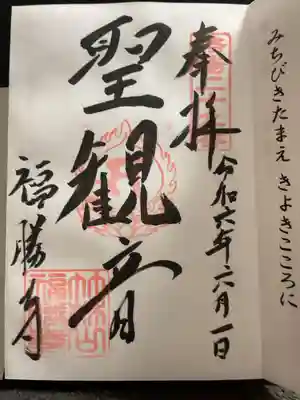 みちびきたまえ きよきこころに
奉拝
令和六年六月一日
聖観音
福勝寺